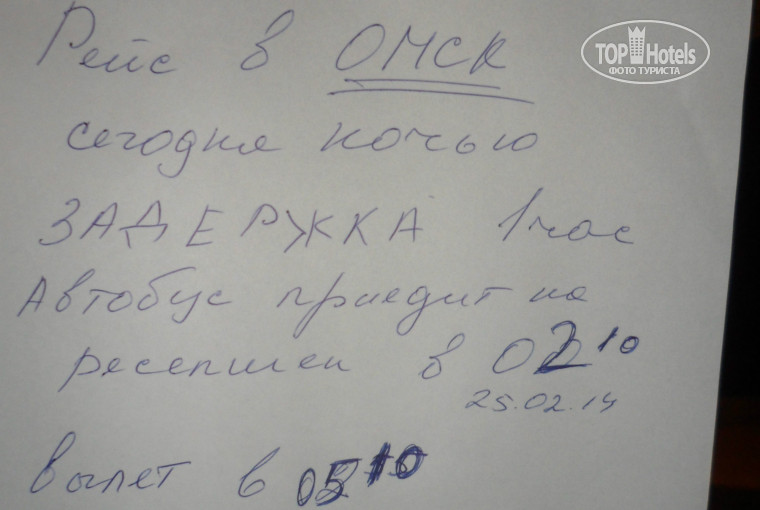 TOP Hotels
ФОТО ТУРИСТА
Рейс в ОМСК
сегодня ночью
ЗАДЕРЖКА 1 час
Автобус приедит на
ресепшен в 02 10
25.02.14
вылет в 05 10